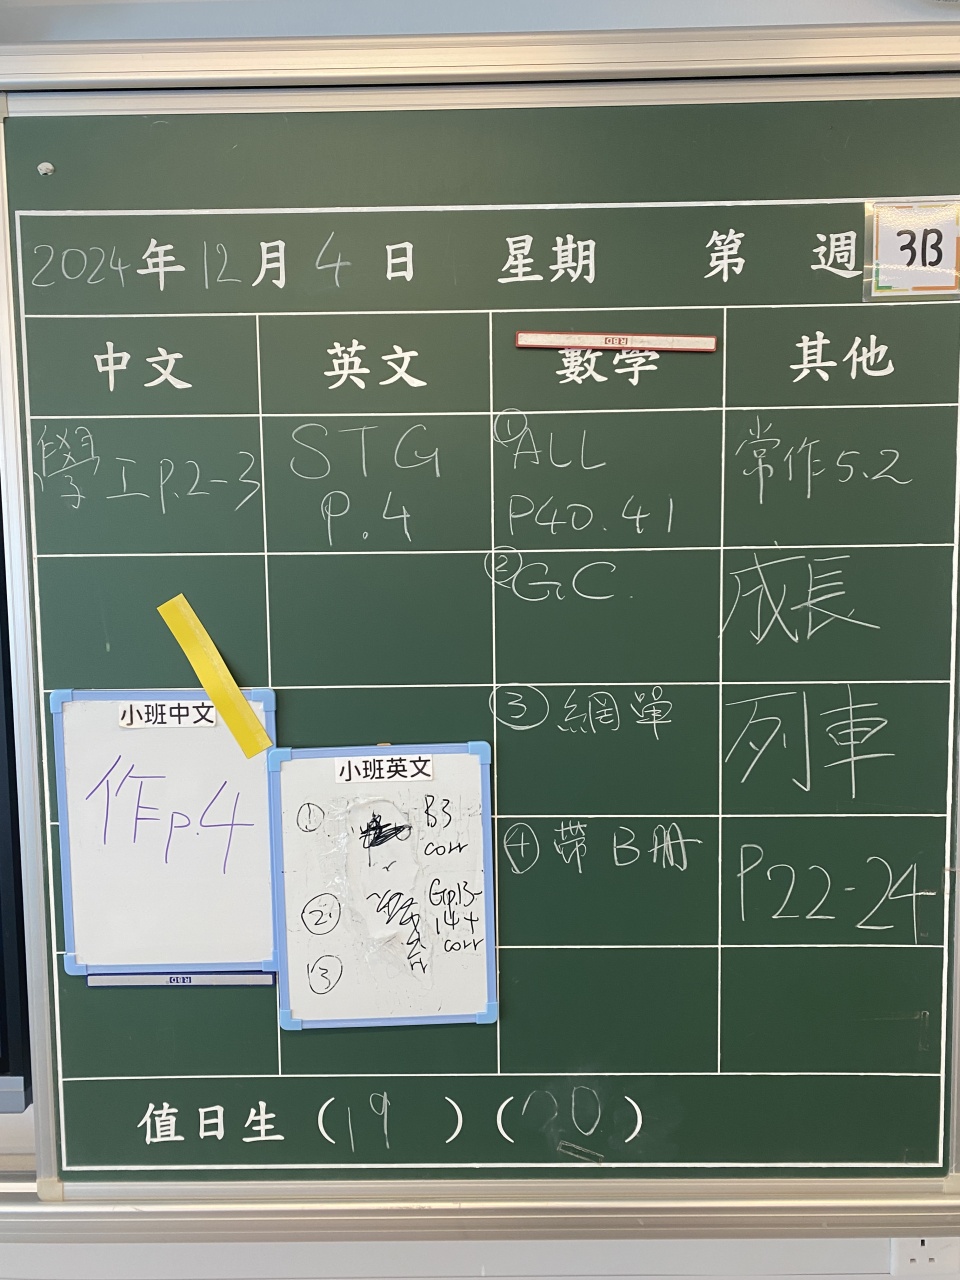 2024年12月4日 星期 第 週 3B
中文 英文 數學 其他
RBD
學工p.2-3
STG
P.4
①ALL
P40.41
②GC.
③網單
④帶B冊
常作5.2
成長
列車
P22-24
小班中文
作p.4
RBD
小班英文
① B3
corr
② Gp.13-
14+
corr
③
值日生(19)(20)